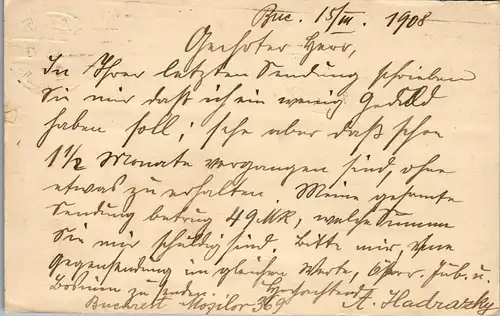 Buc. 15/III. 1908
Geehrter Herr,
In Ihrer letzten Sendung schrieben
Sie mir daß ich ein wenig Geduld
haben soll; sehe aber daß schon
1 1/2 Monate vergangen sind, ohne
etwas zu erhalten. Meine gesamte
Sendung betrug 49 Mk, welche Summe
Sie mir schuldig sind. Bitte mir, eine
Gegensendung im gleichen Werte, Öster. Jub. u.
Bosnien zu senden. Hochachtend
Bucarest Mosilor 369 A. Hadrazky